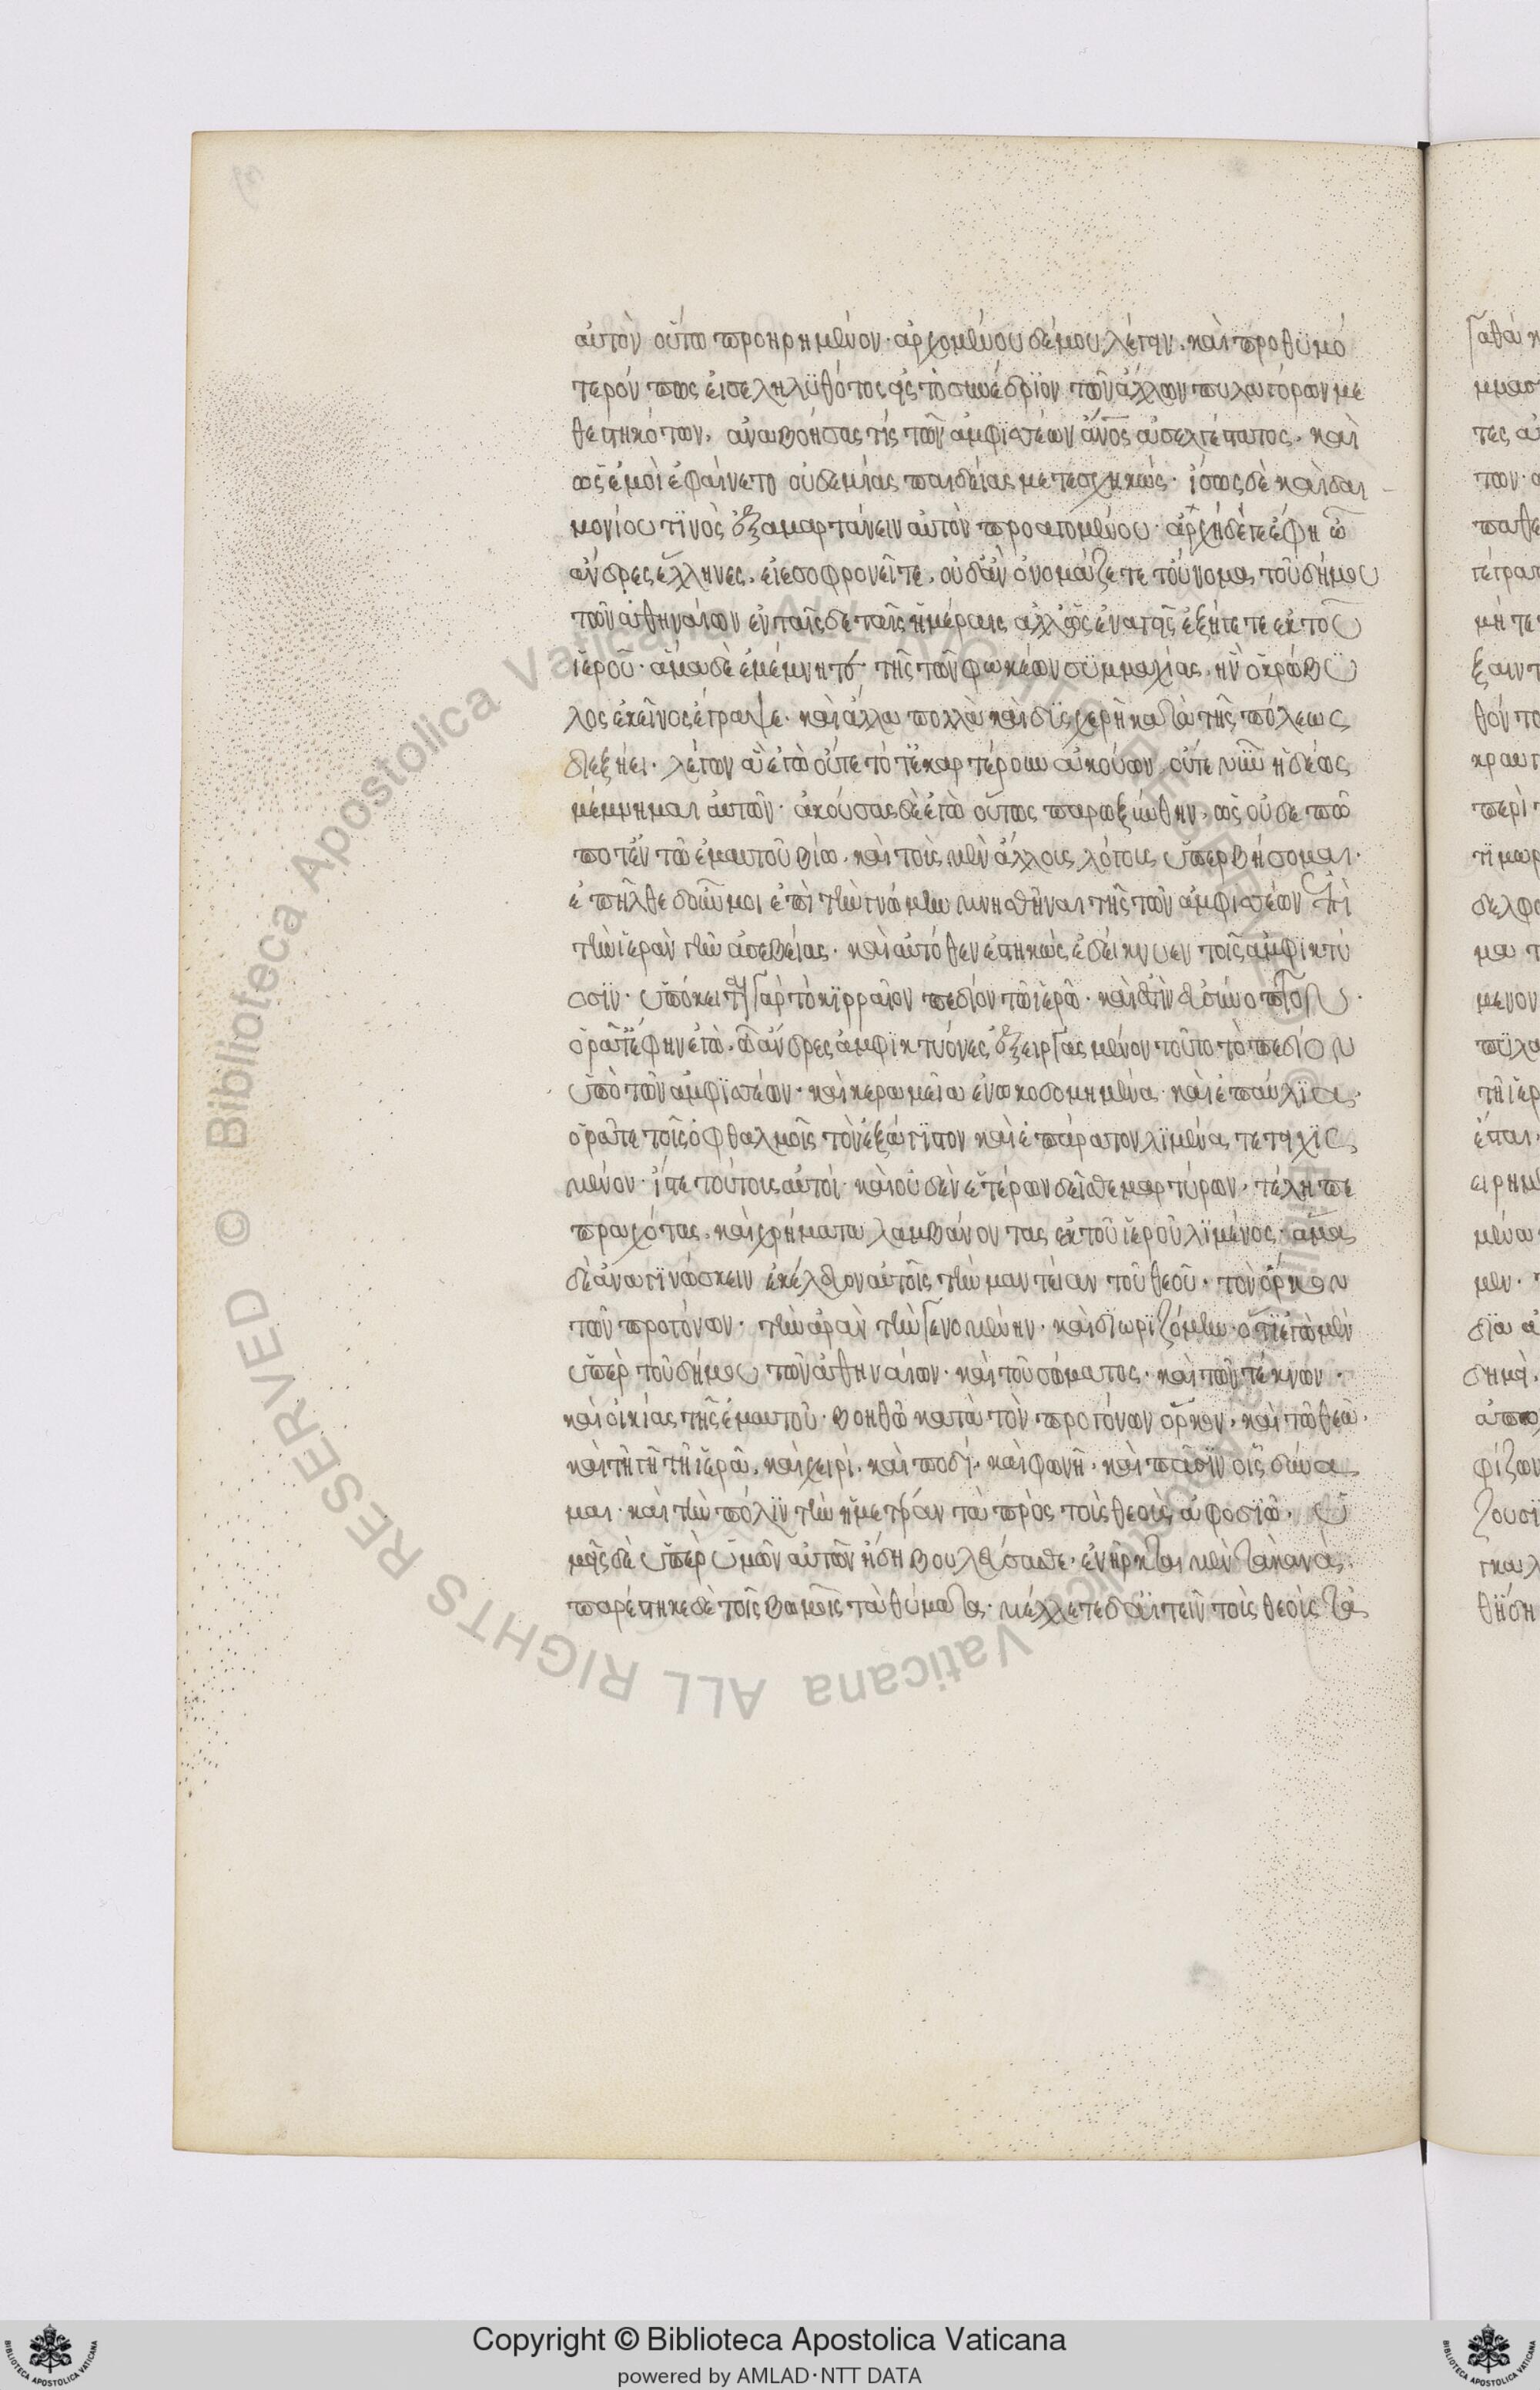 αὐτὸν οὕτω προηρημένον· ἀρχομένου δέ μου λέγειν, καὶ προθϋμό
τερόν πως εἰσεληλϋθότος εἰς τὸ συνέδρϊον τῶν ἄλλων πυλαγόρων με
θεστηκότων, ἀναβοήσας τίς τῶν ἀμφϊσσέων ἄνος ἀσελγέστατος, καὶ
ὡς ἐμοὶ ἐφαίνετο οὐδεμίας παιδείας μετεσχηκώς· ἴσως δὲ καὶ δαι
μονίου τϊνὸς ἐξαμαρτάνειν αὐτὸν προαγομένου· ἀρχὴ δέ γε ἔφη ὦ
ἄνδρες ἕλληνες, εἰ ἐσοφρονεῖτε, οὐδ' ἂν ὀνομάζετε τοὔνομα τοῦ δήμου
τῶν ἀθηναίων ἐν ταῖσδε ταῖς ἡμέραις ἀλλ' ὡς ἐναγεῖς ἐξήγετε ἐκ τοῦ
ἱεροῦ· ἅμα δὲ ἐμέμνητο τῆς τῶν φωκέων συμμαχίας, ἣν ὁ κρωβϋ
λος ἐκεῖνος ἔγραψε· καὶ ἄλλα πολλὰ καὶ δυσχερῆ κατὰ τῆς πόλεως
διεξήει· λέγων ἃ ἐγὼ οὔτε τότε καρτέρουν ἀκούων, οὔτε νῦν ἡδέως
μέμνημαι αὐτῶν· ἀκούσας δὲ ἐγὼ οὕτως παρωξύνθην, ὡς οὐδὲ πώ
ποτ' ἐν τῷ ἐμαυτοῦ βίῳ, καὶ τοὺς μὲν ἄλλους λόγους ὑπερβήσομαι·
ἐπῆλθε δ' οὖν μοι ἐπὶ τὴν γνώμην μνησθῆναι τῆς τῶν ἀμφισσέων περὶ
τὴν ἱερὰν γῆν ἀσεβείας· καὶ αὐτόθεν ἑστηκὼς ἐδείκνυεν τοῖς ἀμφικτύ
οσϊν· ὑπόκειται γὰρ τὸ κϊρραῖον πεδίον τῷ ἱερῷ· καὶ ἔστιν εὐσύνοπτον·
ὁρᾶτ' ἔφην ἐγώ, ὦ ἄνδρες ἀμφϊκτύονες ἐξειργασμένον τοῦτο τὸ πεδίον
ὑπὸ τῶν ἀμφϊσσέων· καὶ κεραμεῖα ἐνῳκοδομημένα· καὶ ἐπαύλϊα·
ὁρᾶτε τοῖς ὀφθαλμοῖς τὸν ἐξάγϊστον καὶ ἐπάρατον λϊμένα τετειχϊς
μένον· ἴστε τούτους αὐτοί· καὶ οὐδὲν ἑτέρων δεῖσθε μαρτύρων, τέλη πε
πραχότας, καὶ χρήματα λαμβάνοντας ἐκ τοῦ ἱεροῦ λϊμένος· ἅμα
δὲ ἀναγϊνώσκειν ἐκέλευον αὐτοῖς τὴν μαντείαν τοῦ θεοῦ, τὸν ὅρκον
τῶν προγόνων· τὴν ἀρὰν τὴν γενομένην· καὶ διωρϊζόμην· ὅτϊ ἐγὼ μὲν
ὑπὲρ τοῦ δήμου τῶν ἀθηναίων· καὶ τοῦ σώματος· καὶ τῶν τέκνων·
καὶ οἰκίας τῆς ἐμαυτοῦ· βοηθῶ κατὰ τὸν προγόνων ὅρκον, καὶ τῷ θεῷ,
καὶ τῇ γῇ τῇ ἱερᾷ, καὶ χειρὶ, καὶ ποδὶ, καὶ φωνῇ, καὶ πᾶσϊν οἷς δύνα
μαι· καὶ τὴν πόλϊν τὴν ἡμετέραν τὰ πρὸς τοὺς θεοὺς ἀφοσϊῶ, ὑ
μεῖς δὲ ὑπὲρ ὑμῶν αὐτῶν ἤδη βουλεύσασθε· ἐνῆρκται μὲν τὰ κανᾶ·
παρέστηκε δὲ τοῖς βωμοῖς τὰ θύματα· μέλλετε δ' αἰτεῖν τοὺς θεοὺς τὰ
Copyright © Biblioteca Apostolica Vaticana
powered by AMLAD·NTT DATA